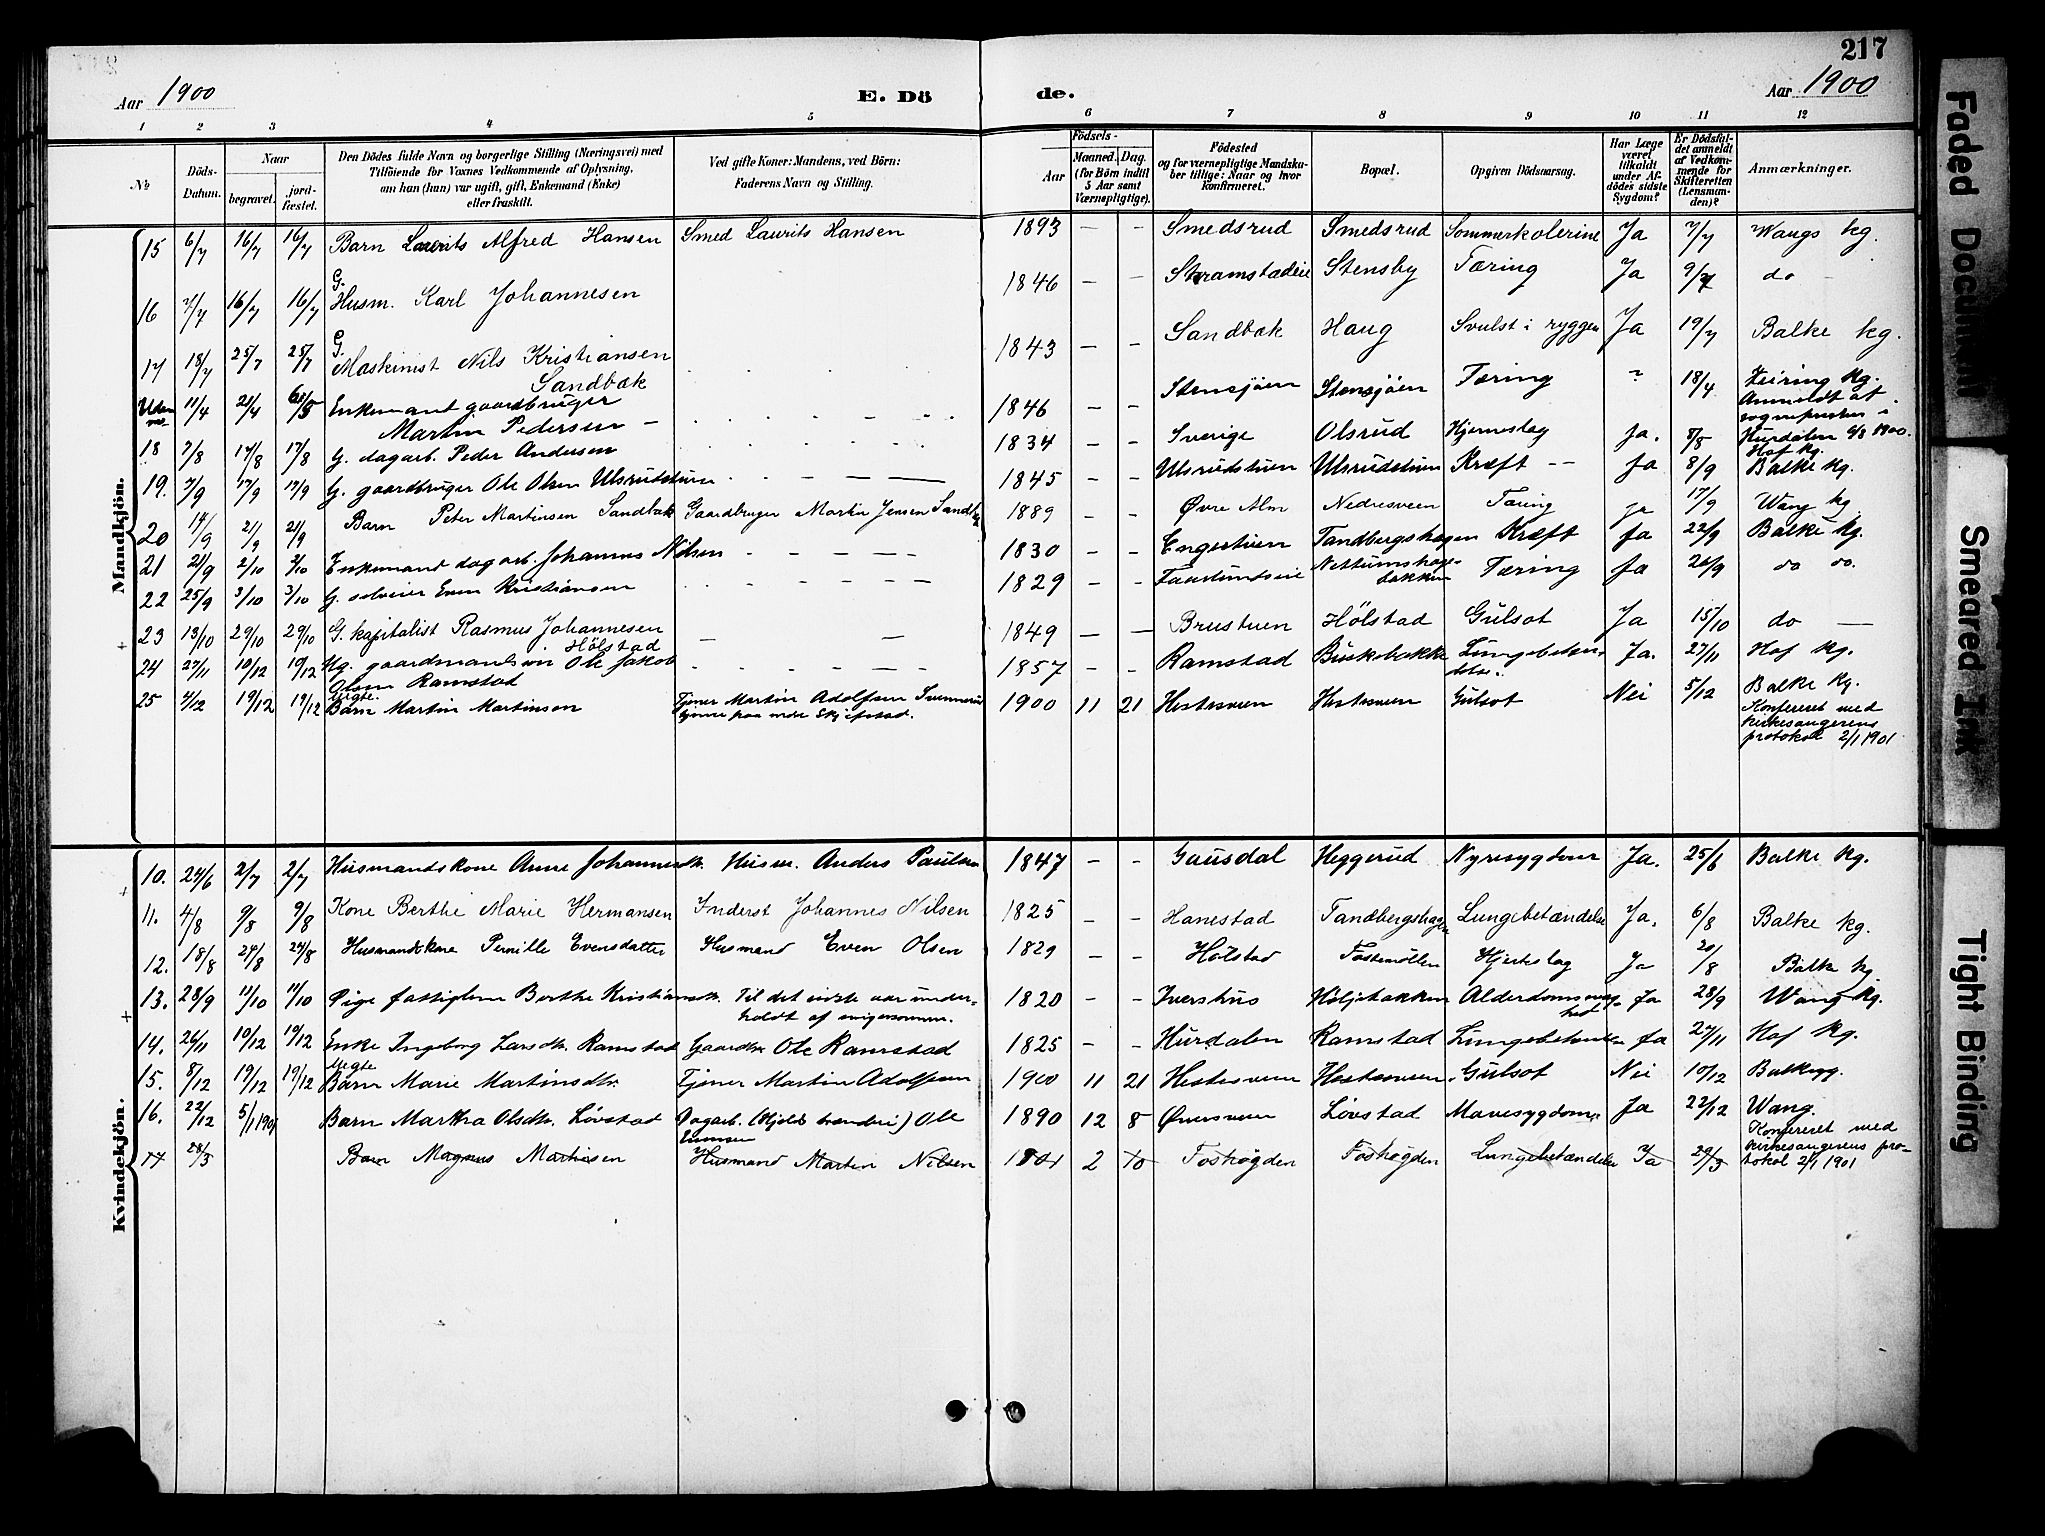 217
Aar 1900
E. Dö
de.
Aar 1900
1 2 3 4 5 6 7 8 9 10 11 12
No
Döds-Datum.
Naar
begravet.
jord-fæstet.
Den Dödes fulde Navn og borgerlige Stilling (Næringsvei) med
Tilföiende for Voxnes Vedkommende af Oplysning,
om han (hun) var ugift, gift, Enkemand (Enke)
eller fraskilt.
Ved gifte Koner: Mandens, ved Börn:
Faderens Navn og Stilling.
Födsels-
Aar
Maaned. Dag.
(for Börn indtil
5 Aar samt
Værnepligtige).
Födested
og for værnepligtige Mandskaber tillige: Naar og hvor
konfirmeret.
Bopæl.
Opgiven Dödsaarsag.
Har Læge været tilkaldt under Afdödes sidste Sygdom?
Er Dödsfaldet anmeldt af Vedkommende for Skifteretten (Lensmanden)?
Anmærkninger.
Mandkjön.
15 6/7 16/7 16/7 Barn Laurits Alfred Hansen Smed Laurits Hansen 1893 — — Smedsrud Smedsrud Sommerkolerine Ja 7/7 Wangs kg.
16 7/7 16/7 16/7 G. Husm. Karl Johannesen 1846 — — Stensby Tæring Ja 9/7 do
17 18/7 25/7 25/7 G. Maskinist Nils Kristiansen Sandbæk 1843 — — Sandbæk Haug Svulst i ryggen Ja 19/7 Balke kg.
11/4 21/4 Enkemand gaardbruger Martin Pedersen — 1846 — — Stensjöen Stensjöen Tæring ? 18/4 Feiring kg. Anmeldt af sognepresten i Hurdalen 6/8 1900.
18 7/8 17/8 17/8 G. dagarb. Peder Andersen 1834 — — Sverige Olsrud Hjerneslag Ja. 8/8 Hof kg.
19. 7/9 17/9 17/9 G. gaardbruger Ole Olsen Ulsrudstuen 1845 — — Ulsrudstuen Ulsrudstuen Kræft -- Ja 8/9 Balke kg.
20 14/9 21/9 21/9 Barn Peter Martinsen Sandbæk Gaardbruger Martin Jensen Sandbæk 1889 — — Øvre Alm Nedresveen Tæring ja 17/9 Wang kg
21 21/9 2/10 2/10 Enkemand dagarb. Johannes Nilsen 1830 — — Engestuen Tandbergshagen Kræft Ja 22/9 Balke kg.
22 25/9 3/10 3/10 G. selveier Even Kristiansen 1829 — — Tæring Ja 26/9 do do.
23 13/10 29/10 29/10 G. kapitalist Rasmus Johannesen Hölstad — — 1849 — — Brustuen Hölstad Gulsot Ja 15/10 do —
24 27/11 10/12 10/12 Ug. gaardmandssön Ole Jakob Olsen Ramstad 1857 — — Ramstad Buskebakke Lungebetændelse. Ja. 27/11 Hof kg.
25 4/12 19/12 19/12 Uegte. Barn Martin Martinsen Tjener Martin Adolfsen 1900 11 21 Hestesveen Hestesveen Gulsot Nei 5/12 Balke kg.
Konfereret med
kirkesangerens
protokol 2/1 1901
Kvindekjön.
10. 24/6 2/7 2/7 Husmandskone Anne Johannesdtr. Husm. Anders Paulsen 1847 — — Gausdal Heggerud Nyresygdom Ja. 25/6 Balke kg.
11. 4/8 9/8 9/8 Kone Berthe Marie Hermansen Inderst Johannes Nilsen 1825 — — Hanestad Tandbergshagen Lungebetændelse Ja. 6/8 Balke kg.
12. 18/8 24/8 24/8 Husmandskone Pernille Evensdatter Husmand Even Olsen 1829 — — Hölstad Fossemöllen Hjerteslag Ja 20/8 Balke kg
13. 28/9 11/10 11/10 Pige fattiglem Berthe Kristiansdtr. Til det sidste aar underholdt af 1820 — — Ivershus Alderdomssvaghed Ja 28/9 Wang kg.
14. 26/11 10/12 10/12 Enke Ingeborg Larsdtr. Ramstad Gaardbr. Ole Ramstad 1825 — — Hurdalen Ramstad Lungebetændelse Ja 27/11 Hof kg.
15. 8/12 19/12 19/12 Uegte Barn Marie Martinsdtr. Tjener Martin Adolfsen 1900 11 21 Hestesveen Hestesveen. Gulsot Nei 10/12 Balke kg.
16. 22/12 5/1 1901 Barn Martha Olsdtr. Lövstad Dagarb. (Kjolds brænderi) Ole 1890 12 8 Øversveen Lövstad Mavesygdom Ja 22/12 Wang.
Konfereret med
kirkesangerens protokol 2/1 1901
17 28/3 Barn Magnus Martinsen Husmand Martin Nilsen 1901 2 10 Foshögden Foshögden Lungebetændelse Ja 29/3
Faded Document
Smeared Ink
Tight Binding